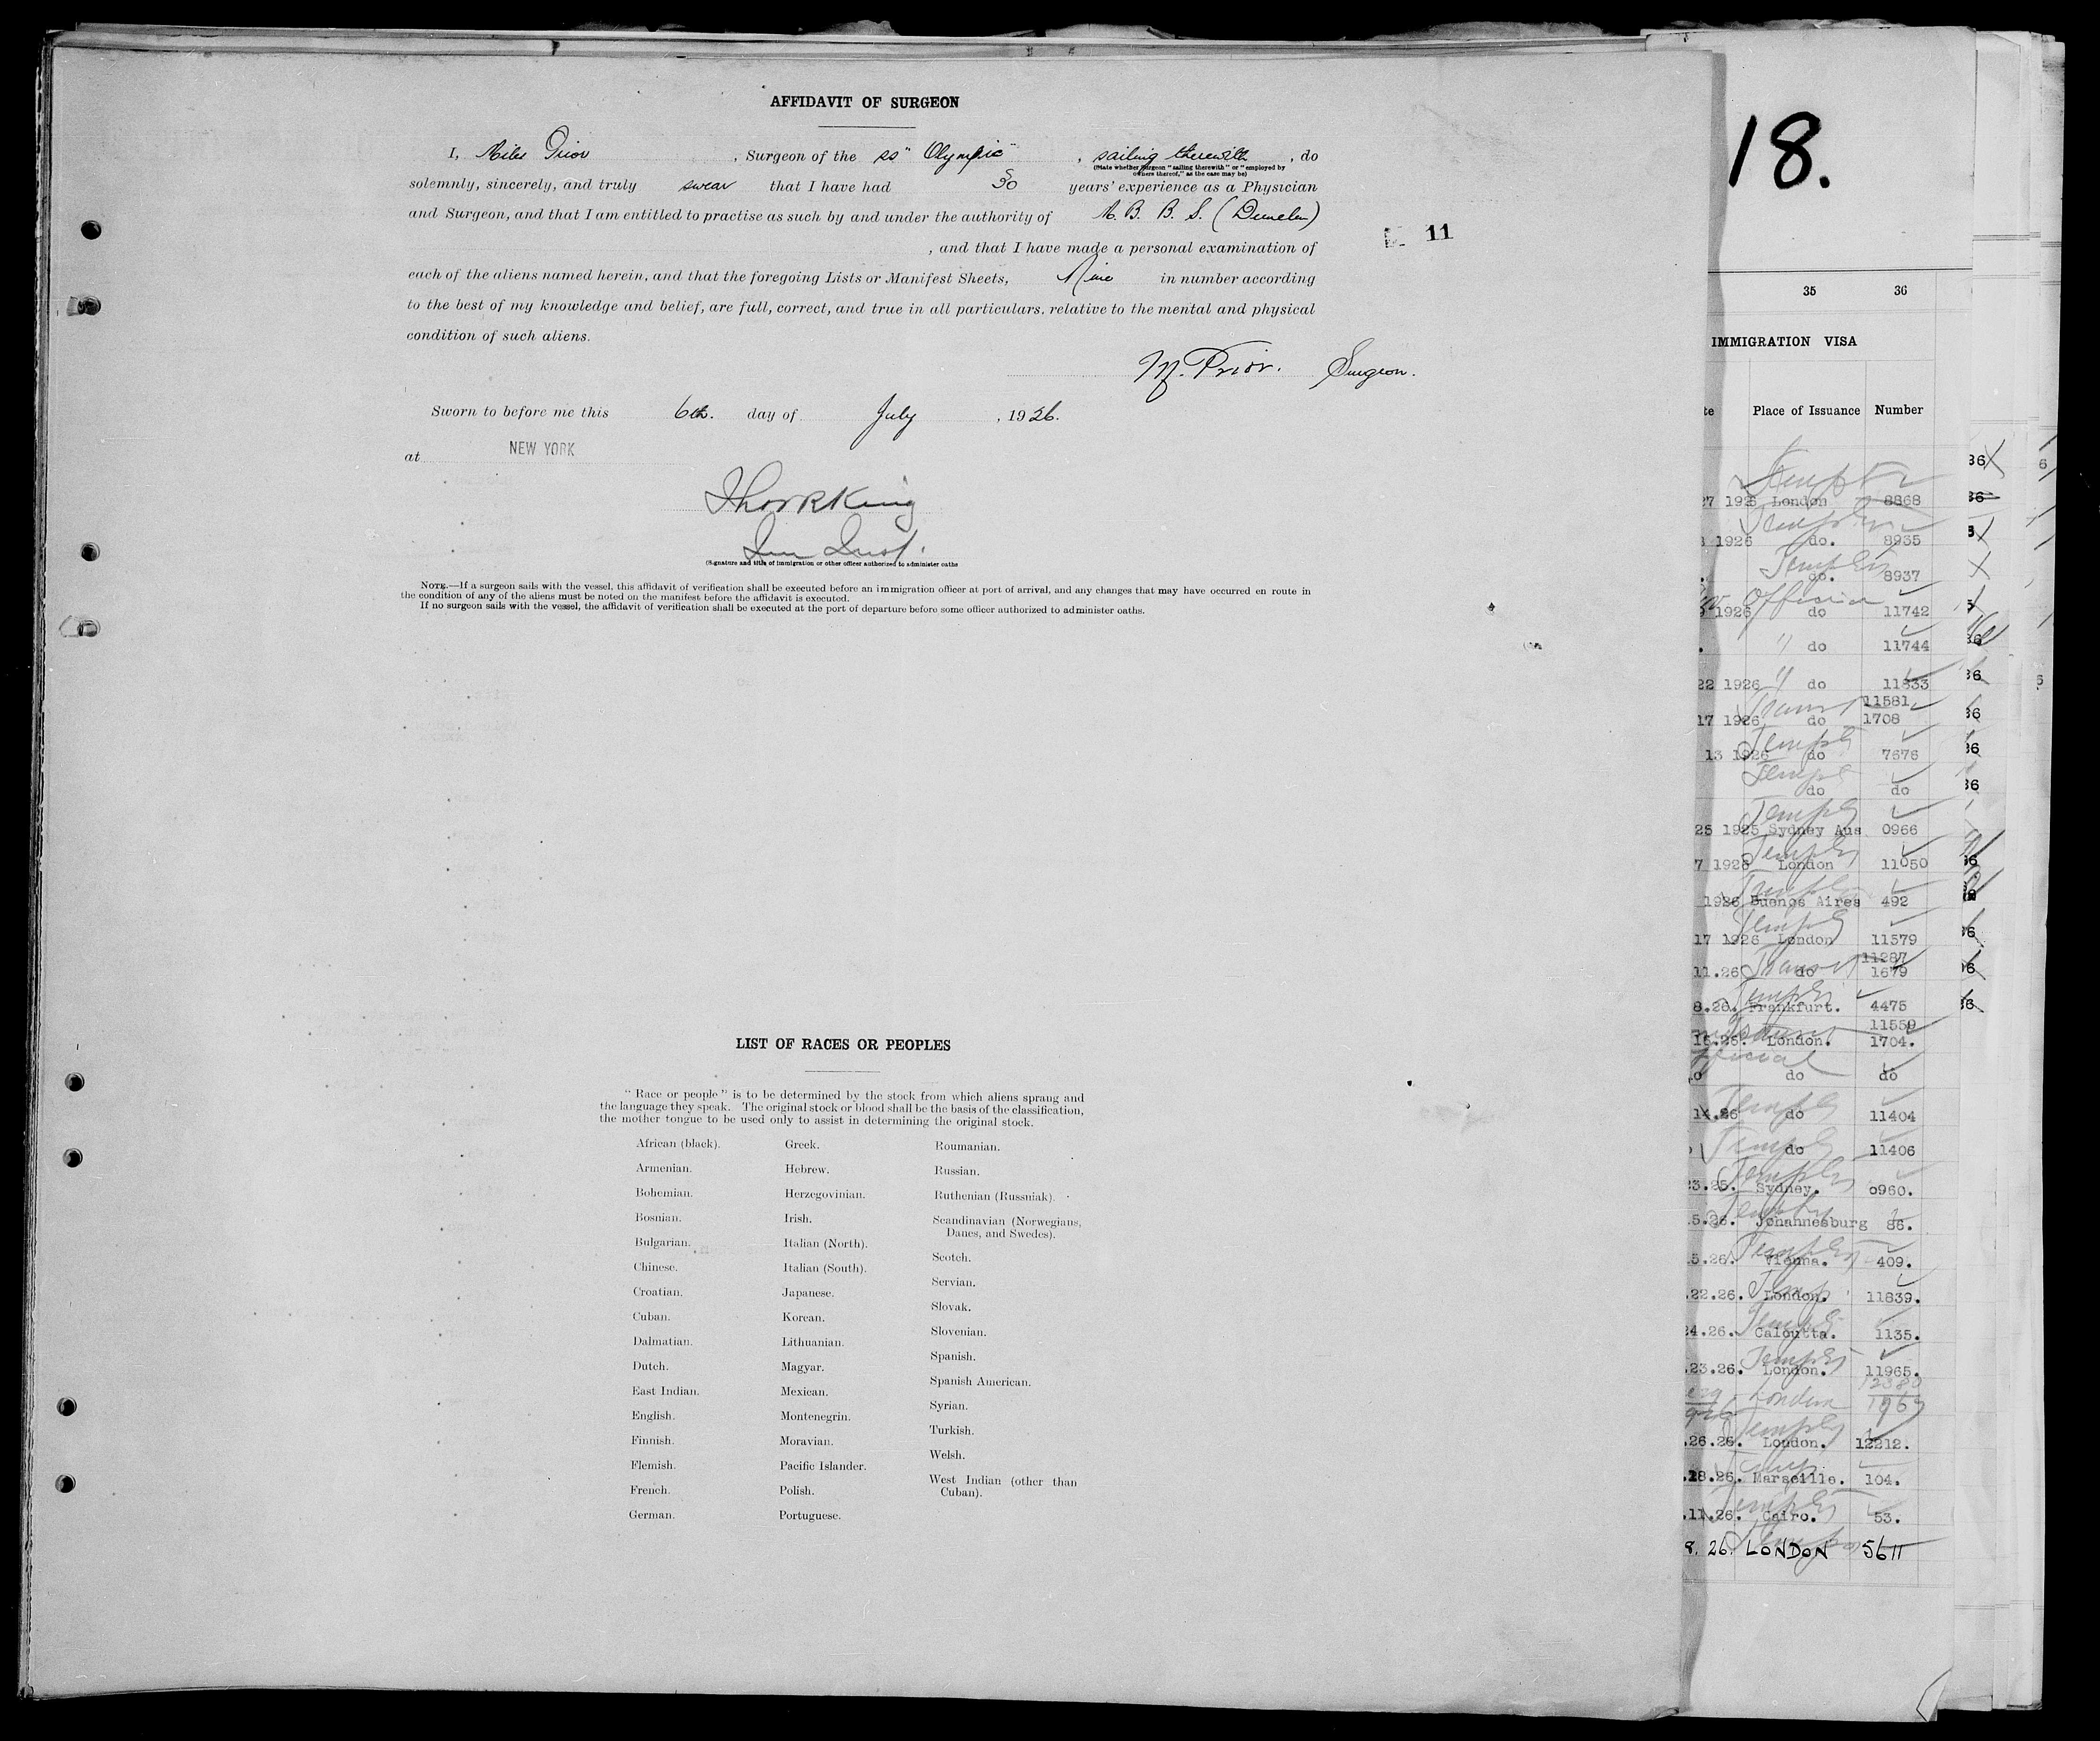 AFFIDAVIT OF SURGEON
I, Miles Prior, Surgeon of the ss "Olympic", sailing therewith, do
(State whether Surgeon "sailing therewith" or "employed by
owners thereof," as the case may be)
solemnly, sincerely, and truly swear that I have had 30 years' experience as a Physician
and Surgeon, and that I am entitled to practise as such by and under the authority of M. B. B. S. (Dunelm)
, and that I have made a personal examination of
11
each of the aliens named herein, and that the foregoing Lists or Manifest Sheets, Nine in number according
to the best of my knowledge and belief, are full, correct, and true in all particulars, relative to the mental and physical
condition of such aliens.
M. Prior. Surgeon.
Sworn to before me this 6th. day of July, 1926.
at NEW YORK
(Signature and title of immigration or other officer authorized to administer oaths
NOTE.—If a surgeon sails with the vessel, this affidavit of verification shall be executed before an immigration officer at port of arrival, and any changes that may have occurred en route in
the condition of any of the aliens must be noted on the manifest before the affidavit is executed.
If no surgeon sails with the vessel, the affidavit of verification shall be executed at the port of departure before some officer authorized to administer oaths.
LIST OF RACES OR PEOPLES
"Race or people" is to be determined by the stock from which aliens sprang and
the language they speak. The original stock or blood shall be the basis of the classification,
the mother tongue to be used only to assist in determining the original stock.
African (black).
Armenian.
Bohemian.
Bosnian.
Bulgarian.
Chinese.
Croatian.
Cuban.
Dalmatian.
Dutch.
East Indian.
English.
Finnish.
Flemish.
French.
German.
Greek.
Hebrew.
Herzegovinian.
Irish.
Italian (North).
Italian (South).
Japanese.
Korean.
Lithuanian.
Magyar.
Mexican.
Montenegrin.
Moravian.
Pacific Islander.
Polish.
Portuguese.
Roumanian.
Russian.
Ruthenian (Russniak).
Scandinavian (Norwegians,
Danes, and Swedes).
Scotch.
Servian.
Slovak.
Slovenian.
Spanish.
Spanish American.
Syrian.
Turkish.
Welsh.
West Indian (other than
Cuban).
18.
35 36
IMMIGRATION VISA
Place of Issuance Number
27 1926 London 8868
1926 do. 8935
do. 8937
1926 do 11742
" do 11744
22 1926 " do 11833
11581
17 1926 do 1708
13 1926 do 7676
do do
25 1925 Sydney Aus 0966
7 1926 London 11050
1926 Buenos Aires 492
17 1926 London 11579
11287
11.26 do 1679
8.26. Frankfurt. 4475
11559
16.26. London. 1704.
do do
14.26 do 11404
do 11406
23.25. Sydney. 0960.
5.26. Johannesburg 86.
5.26. Vienna. 409.
.22.26. London. 11839.
24.26. Calcutta. 1135.
.23.26. London. 11965.
London
.26.26. London. 12212.
.18.26. Marseille. 104.
.11.26. Cairo. 53.
8. 26. LONDON 5611